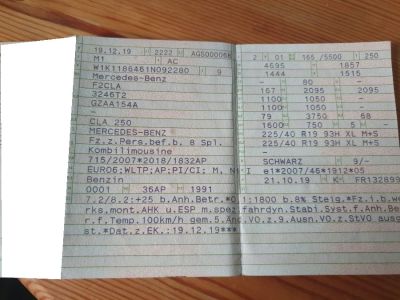 19.12.19 2222 AGS00006
M1 AC
W1K1186461N092280 9
Mercedes-Benz
F2CLA
3246T2
GZAA154A
-
CLA 250
MERCEDES-BENZ
Fz.z.Pers.bef.b. 8 Spl.
Kombilimousine
715/2007*2018/1832AP
EURO6;WLTP;AP;PI/CI; M, N I
Benzin
0001 36AP 1991
2 01 165 /5500 250
4695 1857
1444 1515
- 80 -
167 2095 2095
1100 1050 -
1100 1050 -
79 3750 68
1600 750 5 -
225/40 R19 93H XL M+S
225/40 R19 93H XL M+S
-
SCHWARZ 9/-
e1*2007/46*1912*05
21.10.19 K FR132899
7.2/8.2:+25 b.Anh.Betr.*O.1:1800 b.8% Steig.*Fz.i.b.we
rks.mont.AHK u.ESP m.spez.fahrdyn.Stabi.Syst.f.Anh.Be
r.f.Temp.100km/h gem.5.Änd.VO.z.9.Ausn.VO.z.StVO ausg
st.*Dat.z.EK.:19.12.19***